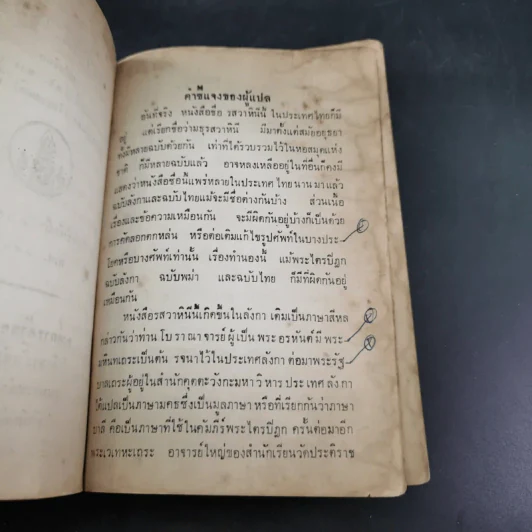 คำชี้แจงของผู้แปล
อันที่จริง หนังสือชื่อ รสวาหินีนี้ ในประเทศไทยก็มี
อยู่ แต่เรียกชื่อว่ามธุรสวาหินี มีมาตั้งแต่สมัยอยุธยา
ทั้งมีหลายฉบับด้วยกัน เท่าที่ได้รวบรวมไว้ในหอสมุดแห่ง
ชาติ ก็มีหลายฉบับแล้ว อาจหลงเหลืออยู่ในที่อื่นก็คงมี
แสดงว่าหนังสือชื่อนี้แพร่หลายในประเทศไทยนานมาแล้ว
ฉบับลังกาและฉบับไทยแม้จะมีชื่อต่างกันบ้าง ส่วนเนื้อ
เรื่องและข้อความเหมือนกัน จะมีผิดกันอยู่บ้างก็เป็นด้วย
การคัดลอกตกหล่น หรือต่อเติมแก้ไขรูปศัพท์ในบางประ
โยคหรือบางศัพท์เท่านั้น เรื่องทำนองนี้ แม้พระไตรปิฎก
ฉบับลังกา ฉบับพม่า และฉบับไทย ก็มีที่ผิดกันอยู่
เหมือนกัน
หนังสือรสวาหินีนี้เกิดขึ้นในลังกา เดิมเป็นภาษาสีหล
กล่าวกันว่าท่าน โบราณาจารย์ผู้เป็นพระอรหันต์มีพระ
มหินทเถระเป็นต้น รจนาไว้ในประเทศลังกา ต่อมาพระรัฐ
บาลเถระผู้อยู่ในสำนักคุตตะวังกะมหาวิหารประเทศลังกา
ได้แปลเป็นภาษามคธซึ่งเป็นมูลภาษา หรือที่เรียกกันว่าภาษา
บาลี คือเป็นภาษาที่ใช้ในคัมภีร์พระไตรปิฎก ครั้นต่อมาอีก
พระเวเทหะเถระ อาจารย์ใหญ่ของสำนักเรียนวัดประติราช